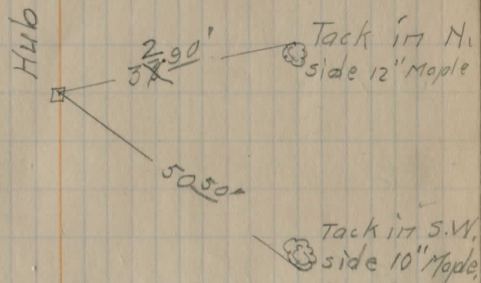 Hub
32.90'
Tack in N.
side 12" Maple
50.50
Tack in S.W.
side 10" Maple.